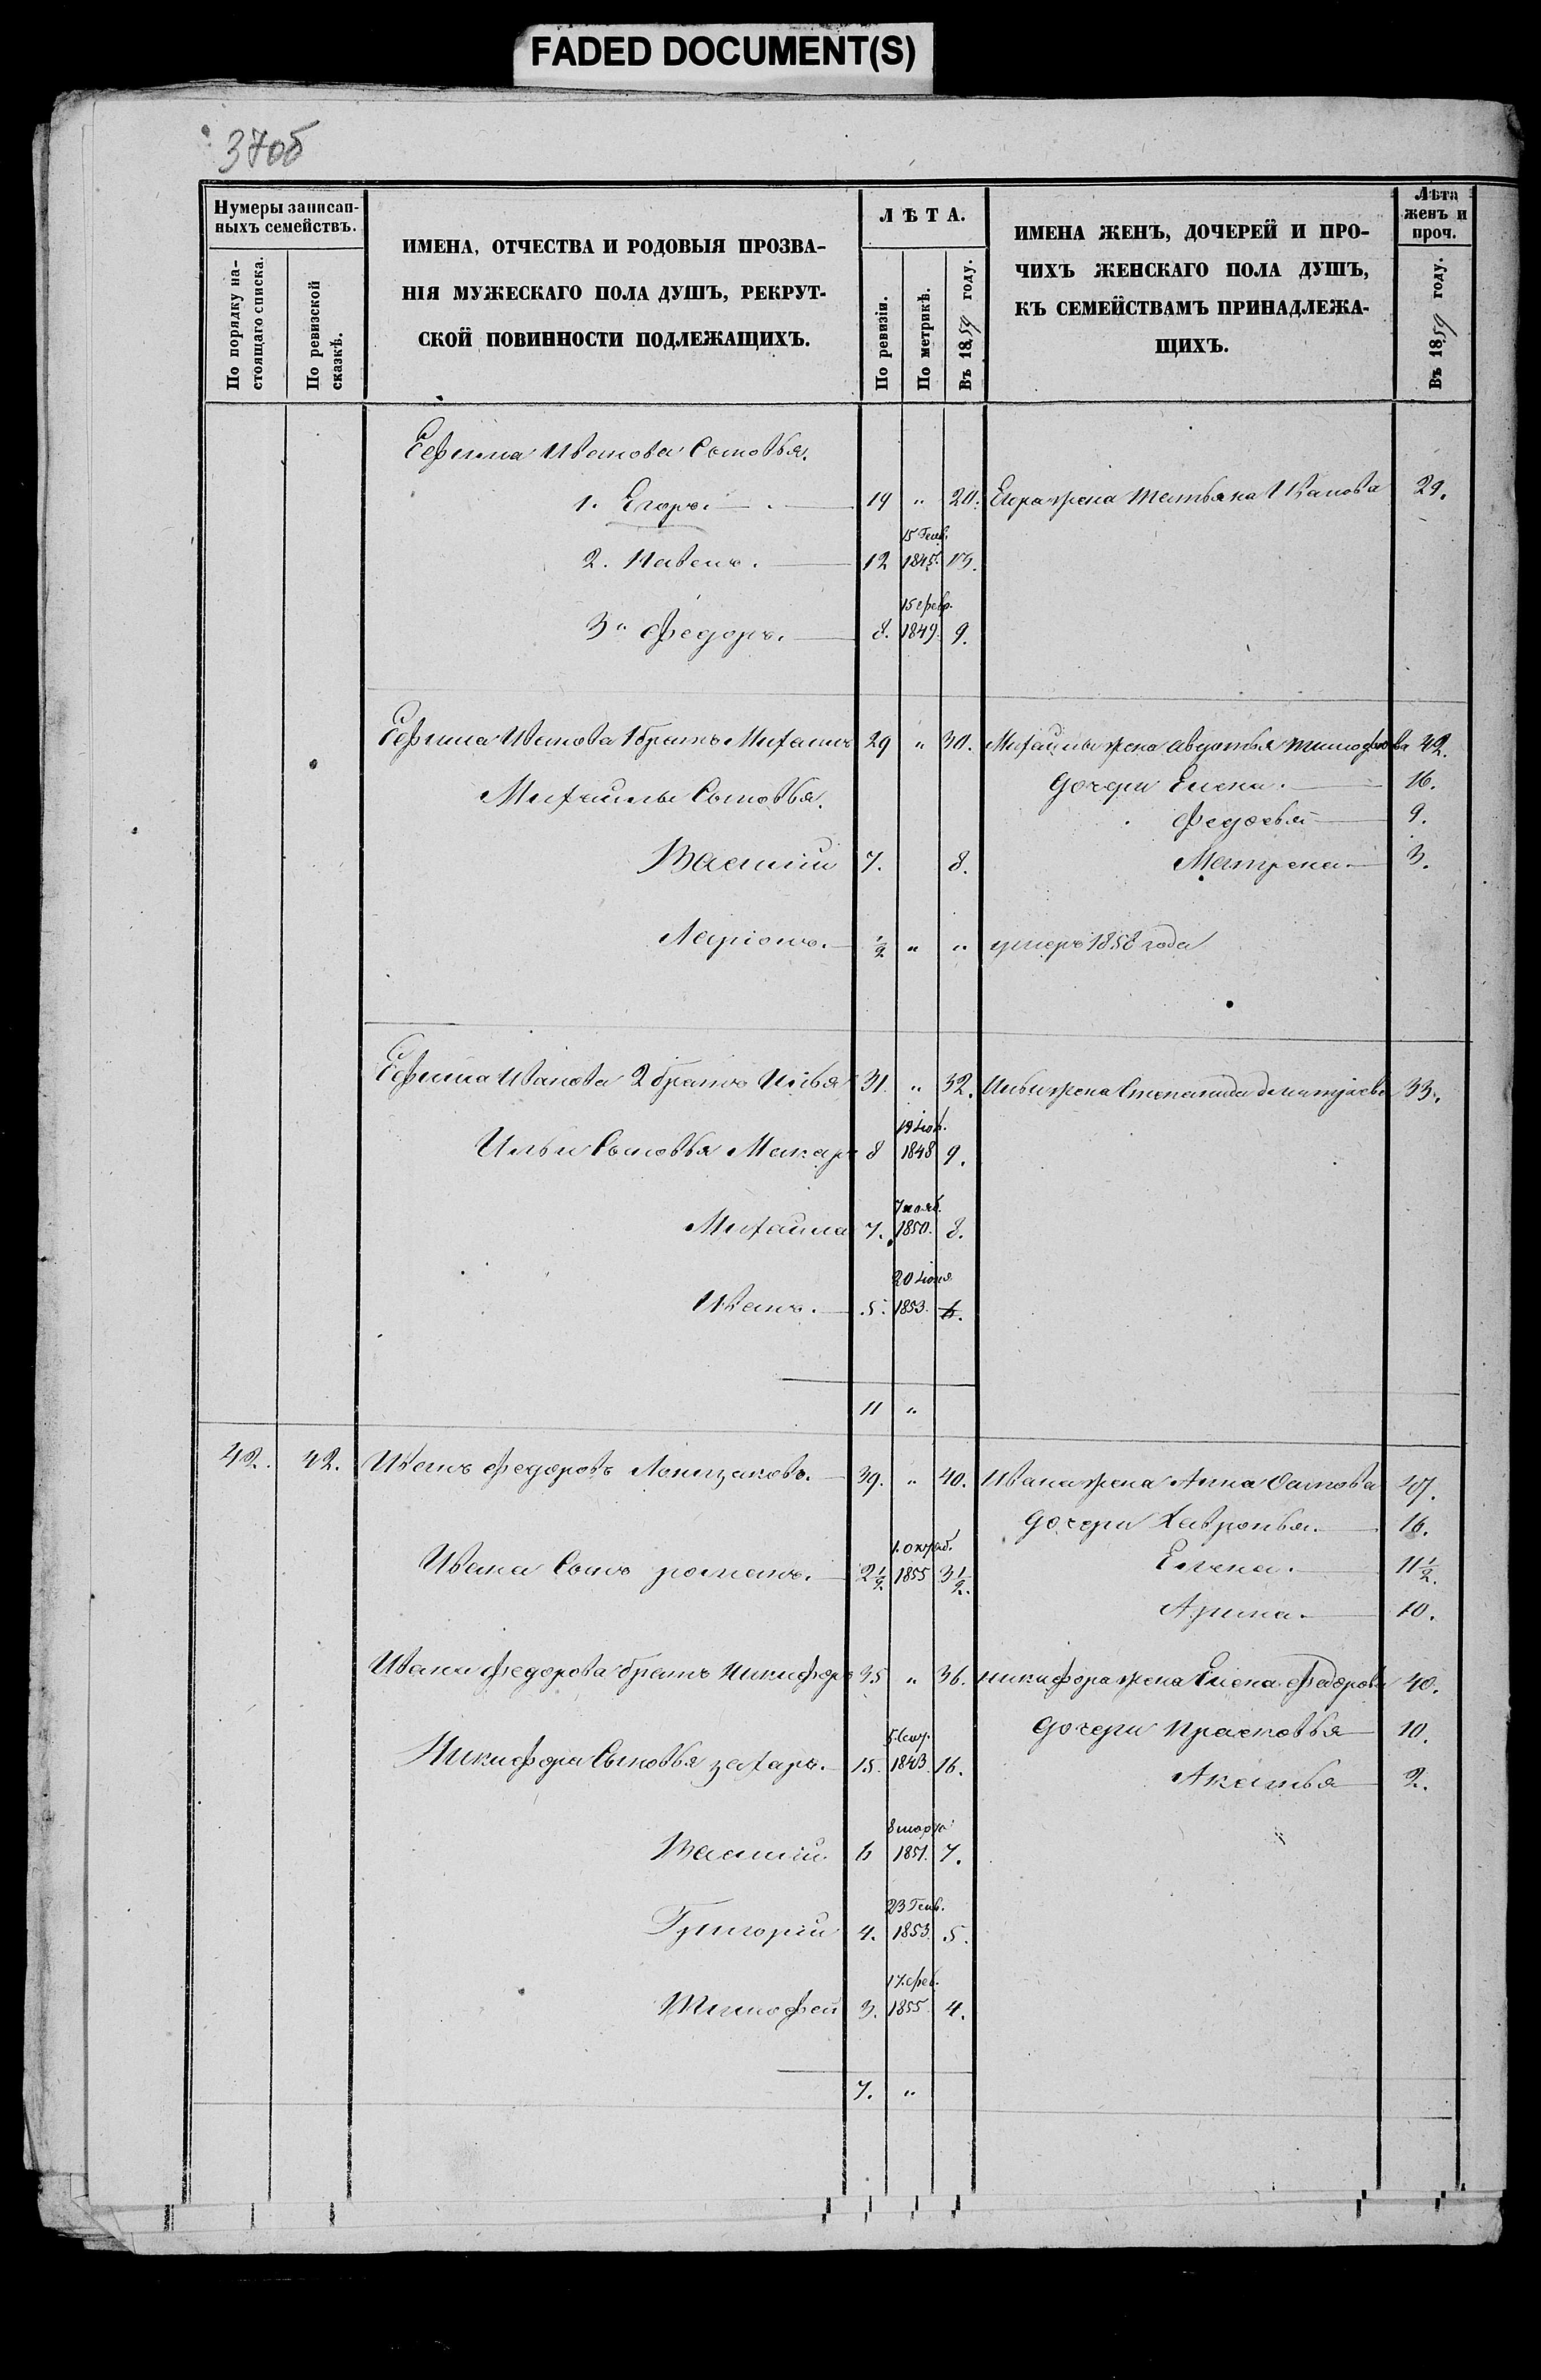 FADED DOCUMENT(S)
37об
Нумеры записан-
ныхъ семействъ.
По порядку на-
стоящаго списка.
По ревизской
сказкѣ.
ИМЕНА, ОТЧЕСТВА И РОДОВЫЯ ПРОЗВА-
НІЯ МУЖЕСКАГО ПОЛА ДУШЪ, РЕКРУТ-
СКОЙ ПОВИННОСТИ ПОДЛЕЖАЩИХЪ.
ЛѢТА.
По ревизіи.
По метрикѣ.
Въ 1859 году.
ИМЕНА ЖЕНЪ, ДОЧЕРЕЙ И ПРО-
ЧИХЪ ЖЕНСКАГО ПОЛА ДУШЪ,
КЪ СЕМЕЙСТВАМЪ ПРИНАДЛЕЖА-
ЩИХЪ.
Лѣта
женъ и
проч.
Въ 1859 году.
Ефима Иванова Сыновья.
1. Егоръ. 19 " 20. Егора жена Татьяна Иванова 29.
15 Генв.
2. Павелъ. 12 1845. 13.
15 февр.
3" Федоръ. 8. 1849. 9.
Ефима Иванова 1 братъ Михаилъ 29 " 30. Михаилы жена авдотья тимофеова 42.
Михаилы Сыновья. дочери Елена. 16.
Федосья 9.
Василій 7. 8. Матрена 3.
Ларіонъ. 1/2 " " умеръ 1858 года
Ефима Иванова 2 братъ Илья 31. " 32. Ильи жена Степанида 33.
Ильи Сыновья Макаръ 8 1848 9.
7 нояб.
Михаила 7. 1850. 8.
20 Іюня
Иванъ. 5. 1853. 6.
11 "
42. 42. Иванъ Федоровъ 39. " 40. Ивана жена Анна 47.
дочери Хавронья. 16.
1. октяб.
Ивана Сынъ романъ. 2 1/2. 1855 3 1/2. Елена. 11 1/2.
Арина. 10.
Ивана федорова братъ Никифоръ 35 " 36. никифора жена Елена Федорова 40.
дочери Прасковья 10.
5. Сент.
Никифора Сыновья захаръ. 15. 1843. 16. Акатья 2.
8 марта
Василій. 6 1851. 7.
23 Генв.
Григорій 4. 1853. 5.
17. фев.
Тимофей 3. 1855. 4.
7. "